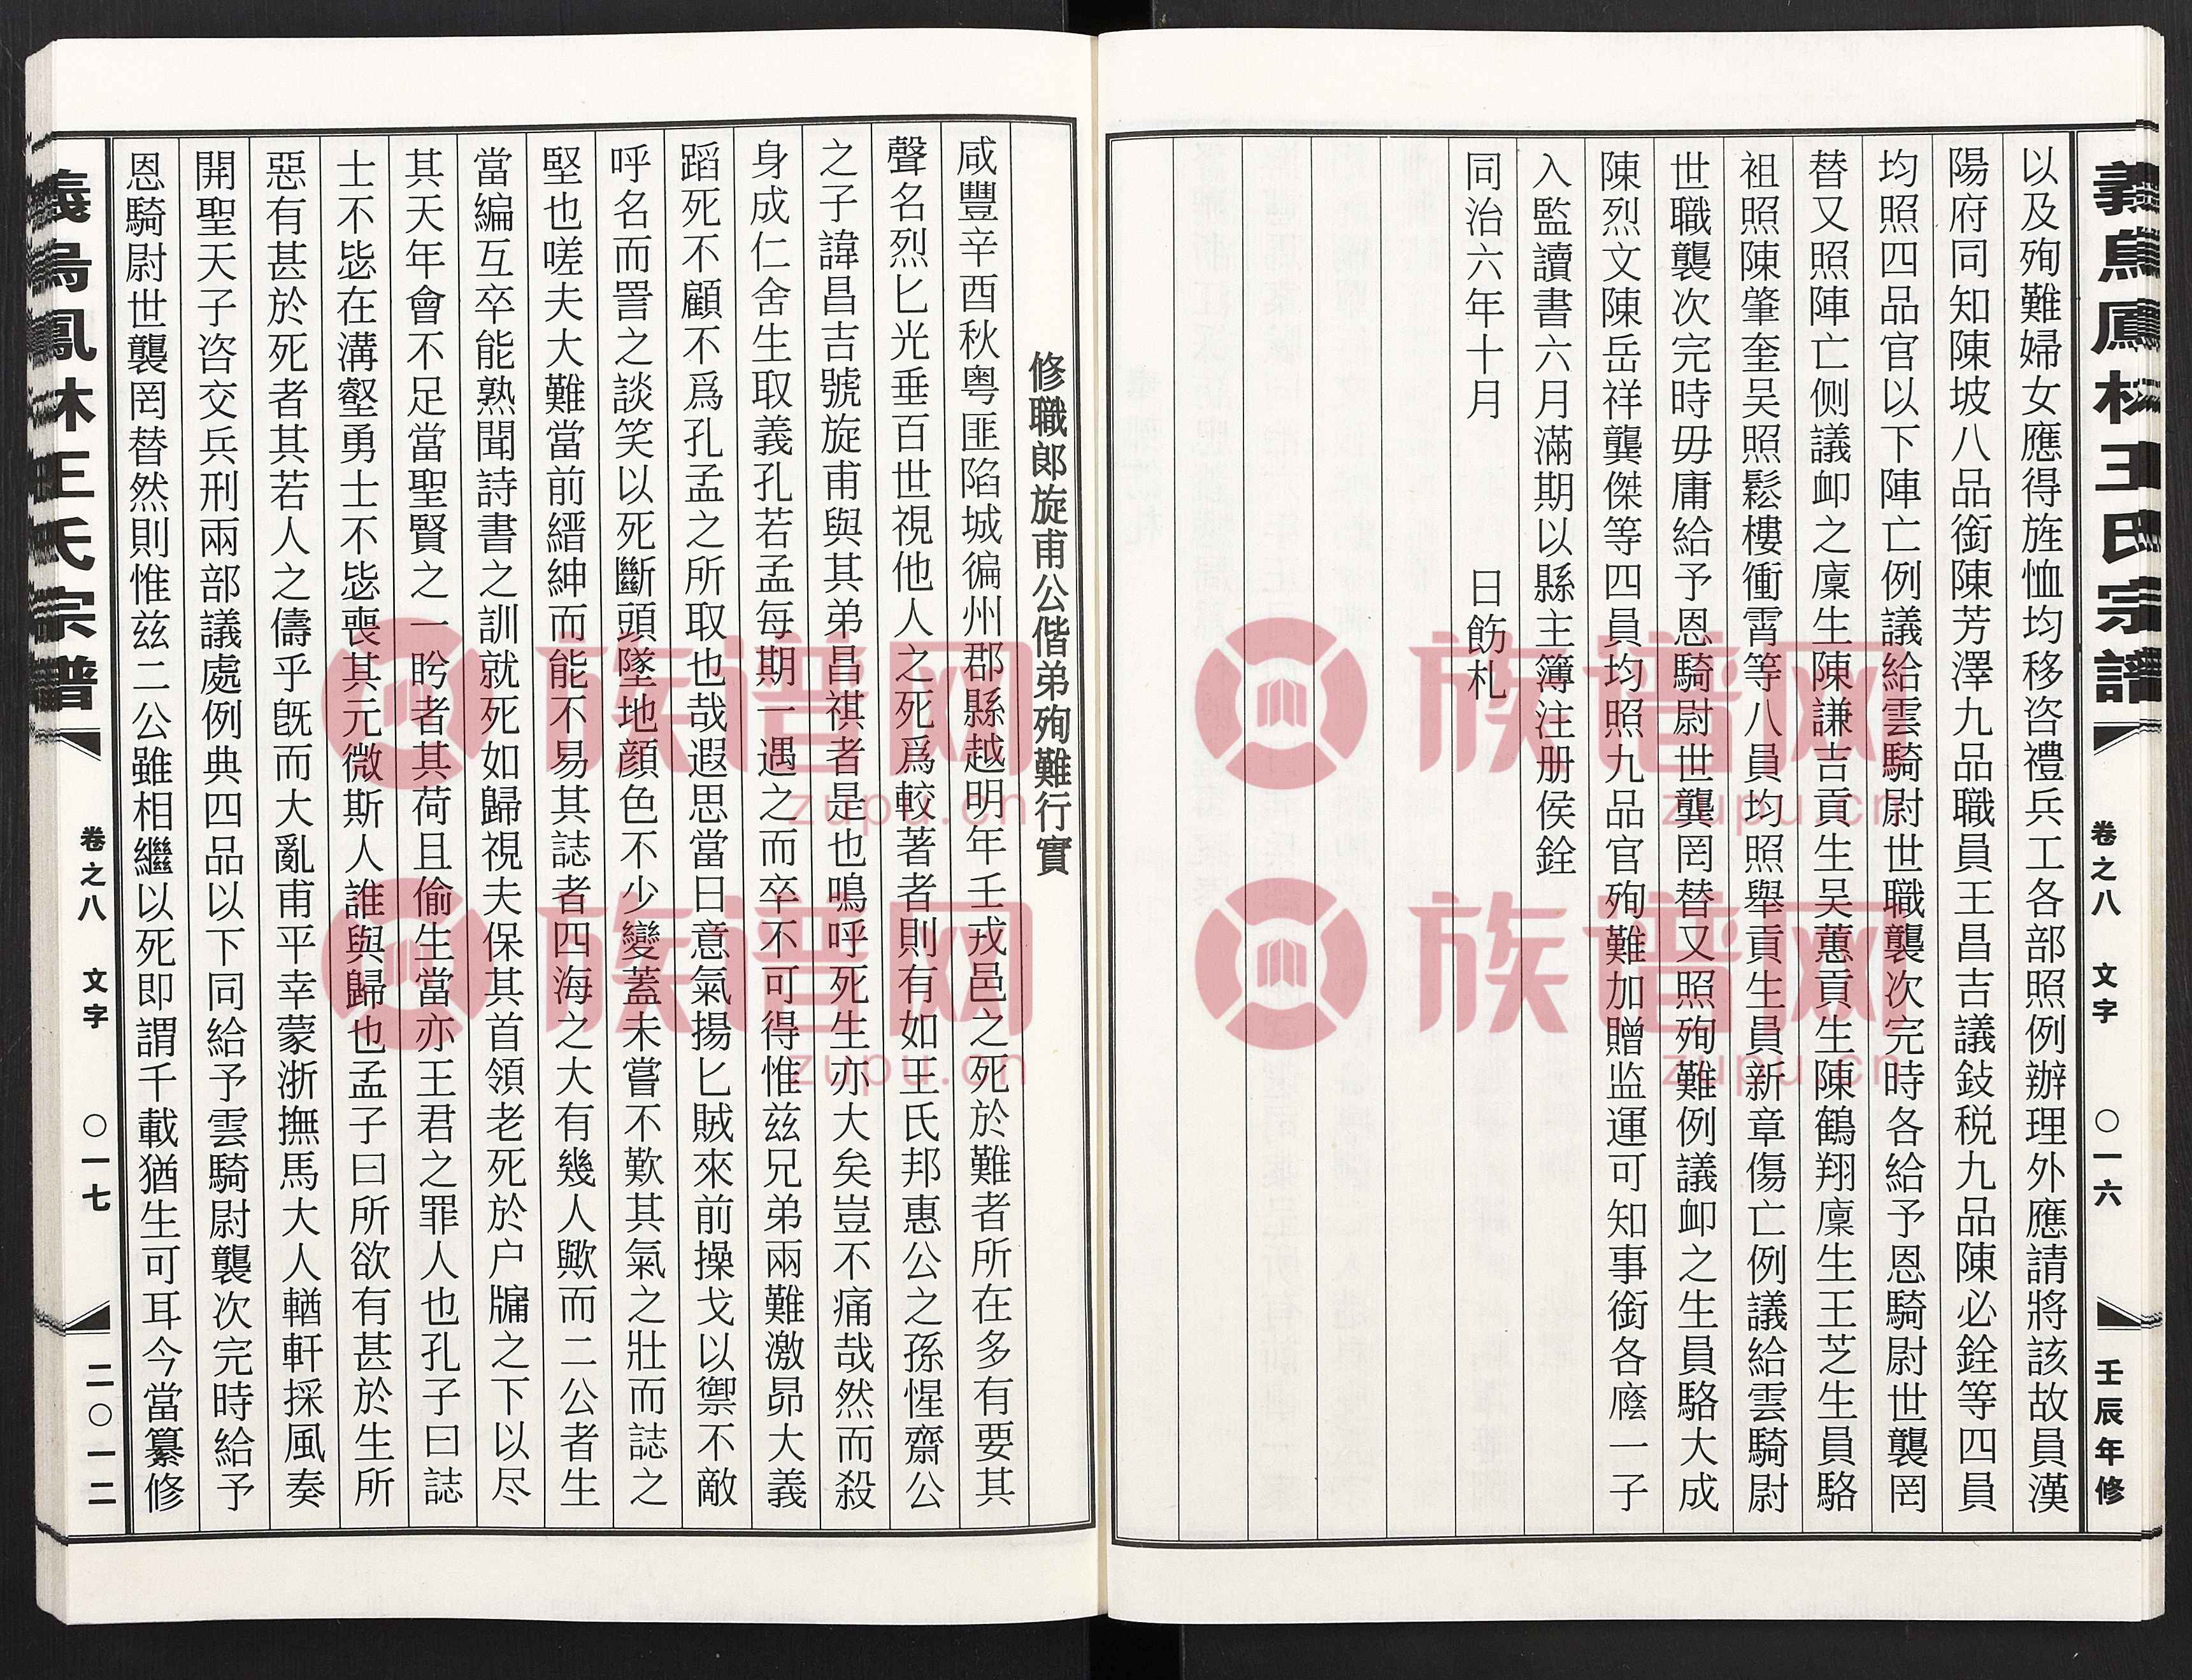 義烏鳳林王氏宗譜
卷之八 文字 〇一六 壬辰年修
以及殉難婦女應得旌恤均移咨禮兵工各部照例辦理外應請將該故員漢
陽府同知陳坡八品銜陳芳澤九品職員王昌吉議敍税九品陳必銓等四員
均照四品官以下陣亡例議給雲騎尉世職襲次完時各給予恩騎尉世襲罔
替又照陣亡例議卹之廩生陳謙吉貢生吴蕙貢生陳鶴翔廩生王芝生員駱
祖照陳肇奎吴照鬆樓衝霄等八員均照舉貢生員新章傷亡例議給雲騎尉
世職襲次完時毋庸給予恩騎尉世襲罔替又照殉難例議卹之生員駱大成
陳烈文陳岳祥龔傑等四員均照九品官殉難加贈监運可知事銜各廕一子
入監讀書六月滿期以縣主簿注册侯銓
同治六年十月 日飭札
修職郎旋甫公偕弟殉難行實
咸豐辛酉秋粤匪陷城徧州郡縣越明年壬戎邑之死於難者所在多有要其
聲名烈匕光垂百世視他人之死爲較著者則有如王氏邦惠公之孫惺齋公
之子諱昌吉號旋甫與其弟昌祺者是也鳴呼死生亦大矣豈不痛哉然而殺
身成仁舍生取義孔若孟每期一遇之而卒不可得惟兹兄弟兩難激昴大義
蹈死不顧不爲孔孟之所取也哉遐思當日意氣揚匕賊來前操戈以禦不敵
呼名而詈之談笑以死斷頭墜地顔色不少變蓋未嘗不歎其氣之壯而誌之
堅也嗟夫大難當前縉紳而能不易其誌者四海之大有幾人歟而二公者生
當編互卒能熟聞詩書之訓就死如歸視夫保其首領老死於户牖之下以尽
其天年會不足當聖賢之一盻者其荷且偷生當亦王君之罪人也孔子曰誌
士不毖在溝壑勇士不毖喪其元微斯人誰與歸也孟子曰所欲有甚於生所
惡有甚於死者其若人之儔乎旣而大亂甫平幸蒙浙撫馬大人輶軒採風奏
開聖天子咨交兵刑兩部議處例典四品以下同給予雲騎尉襲次完時給予
恩騎尉世襲罔替然則惟兹二公雖相繼以死即謂千載猶生可耳今當纂修
義烏鳳林王氏宗譜
卷之八 文字 〇一七 二〇一二
族谱网
zupu.cn
族谱网
zupu.cn
族谱网
zupu.cn
族谱网
zupu.cn